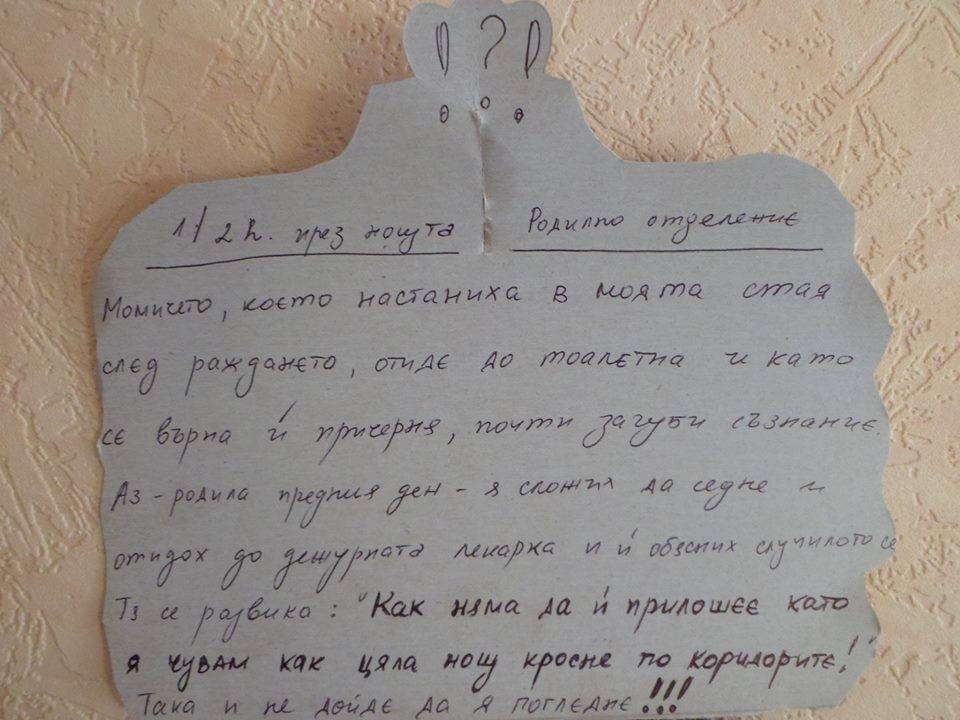 ! ? !
1/2 h. през нощта Родилно отделение
Момичето, което настаниха в моята стая
след раждането, отиде до тоалетна и като
се върна ѝ причерня, почти загуби съзнание.
Аз - родила предния ден - я сложих да седне и
отидох до дежурната лекарка и ѝ обясних случилото се
Тя се развика: "Как няма да ѝ прилошее като
я чувам как цяла нощ кросне по коридорите!"
Така и не дойде да я погледне!!!